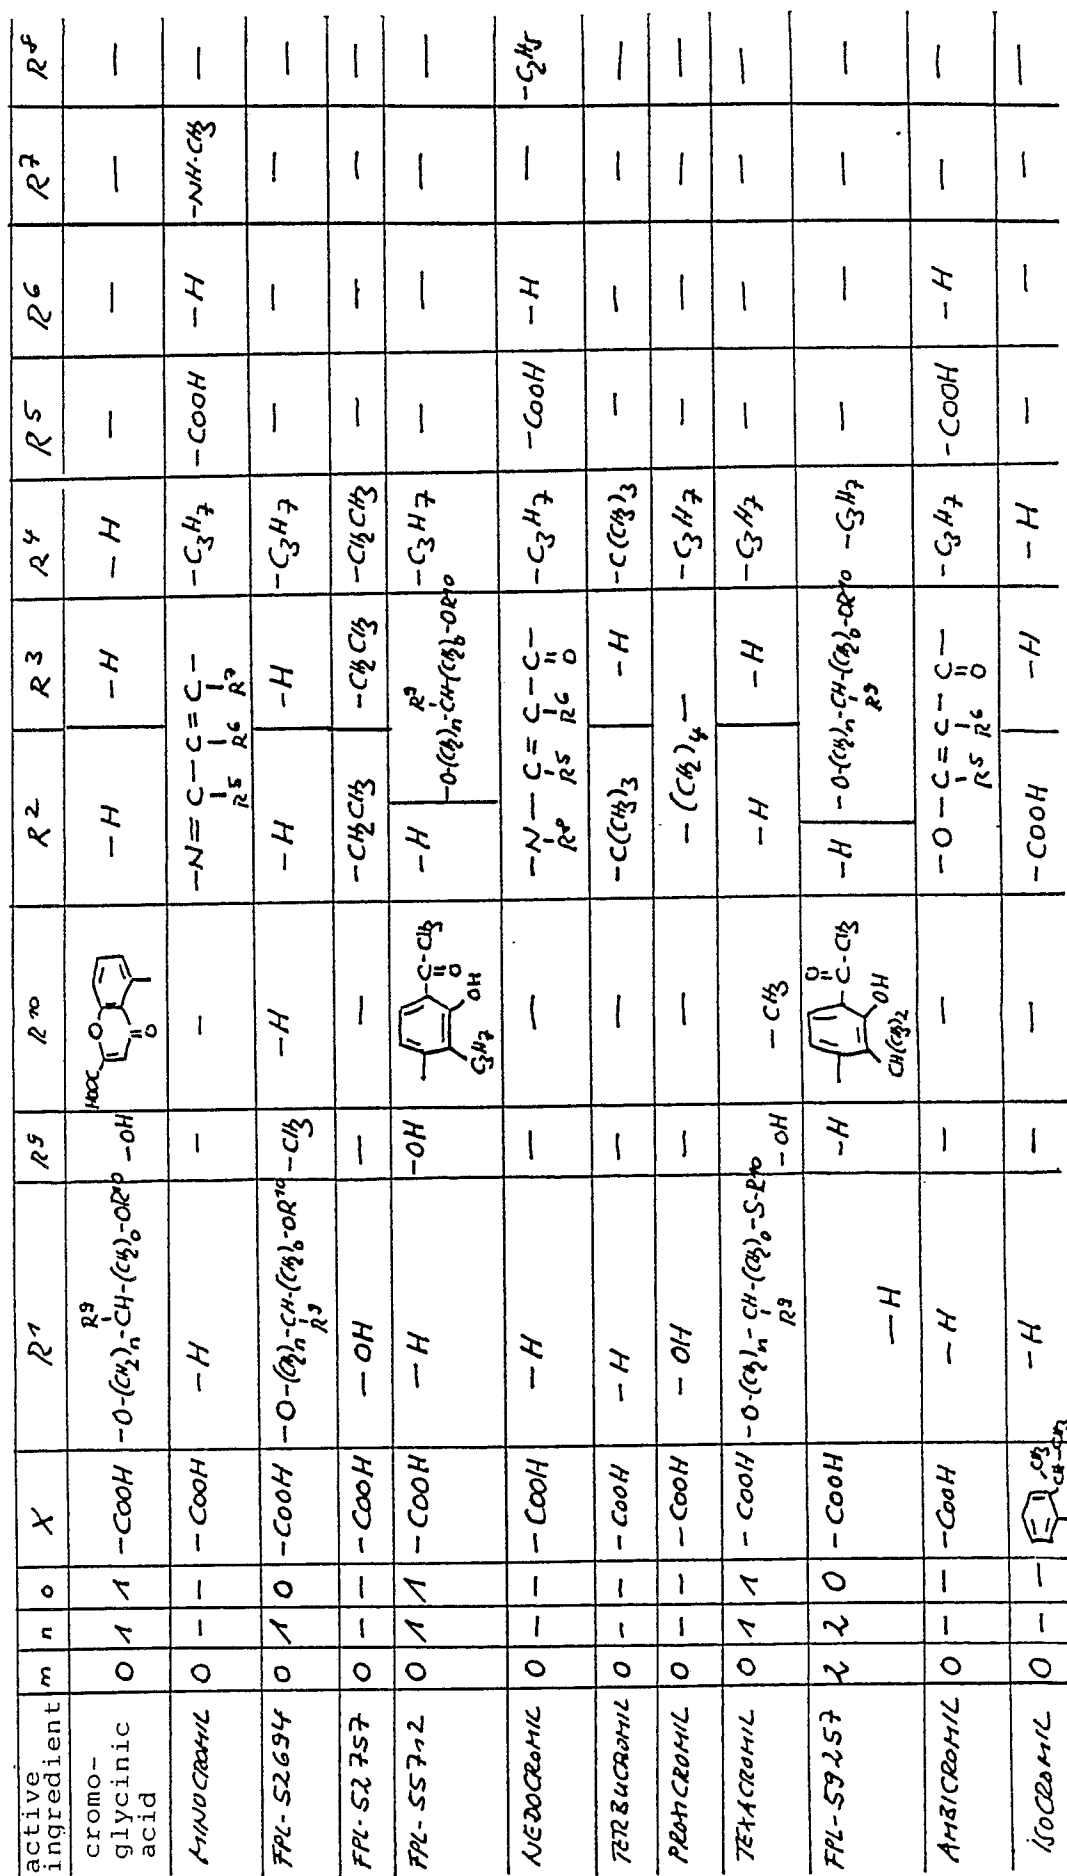 active ingredient | m | n | o | X | R1 | R9 | R10 | R2 | R3 | R4 | R5 | R6 | R7 | R8
cromo-glycinic acid | 0 | 1 | 1 | -COOH | -O-(CH2)n-CH(R9)-(CH2)o-OR10 | -OH | HOOC O O | -H | -H | -H | — | — | — | —
MINOCROMIL | 0 | - | - | -COOH | -H | - | - | -N=C(R5)-C(R6)=C(R7)- | -C3H7 | -COOH | -H | -NH-CH3 | —
FPL-52694 | 0 | 1 | 0 | -COOH | -O-(CH2)n-CH(R9)-(CH2)o-OR10 | -CH3 | -H | -H | -H | -C3H7 | — | — | — | —
FPL-52757 | 0 | - | - | -COOH | -OH | — | — | -CH2CH3 | -CH2CH3 | -CH2CH3 | — | — | — | —
FPL-55712 | 0 | 1 | 1 | -COOH | -H | -OH | C3H7 OH -C(=O)-CH3 | -H | -O-(CH2)n-CH(R9)-(CH2)o-OR10 | -C3H7 | — | — | — | —
NEDOCROMIL | 0 | - | - | -COOH | -H | — | — | -N(R8)-C(R5)=C(R6)-C(=O)- | -C3H7 | -COOH | -H | — | -C2H5
TERBUCROMIL | 0 | - | - | -COOH | -H | — | — | -C(CH3)3 | -H | -C(CH3)3 | — | — | — | —
PROXICROMIL | 0 | - | - | -COOH | -OH | — | — | -(CH2)4- | -C3H7 | — | — | — | —
TEXACROMIL | 0 | 1 | 1 | -COOH | -O-(CH2)n-CH(R9)-(CH2)o-S-R10 | -OH | -CH3 | -H | -H | -C3H7 | — | — | — | —
FPL-59257 | 2 | 2 | 0 | -COOH | -H | -H | CH(CH3)2 OH -C(=O)-CH3 | -H | -O-(CH2)n-CH(R9)-(CH2)o-OR10 | -C3H7 | — | — | — | —
AMBICROMIL | 0 | - | - | -COOH | -H | — | — | -O-C(R5)=C(R6)-C(=O)- | -C3H7 | -COOH | -H | — | —
ISOCROMIL | 0 | - | - | CH3 CH-CH3 | -H | — | — | -COOH | -H | -H | — | — | — | —